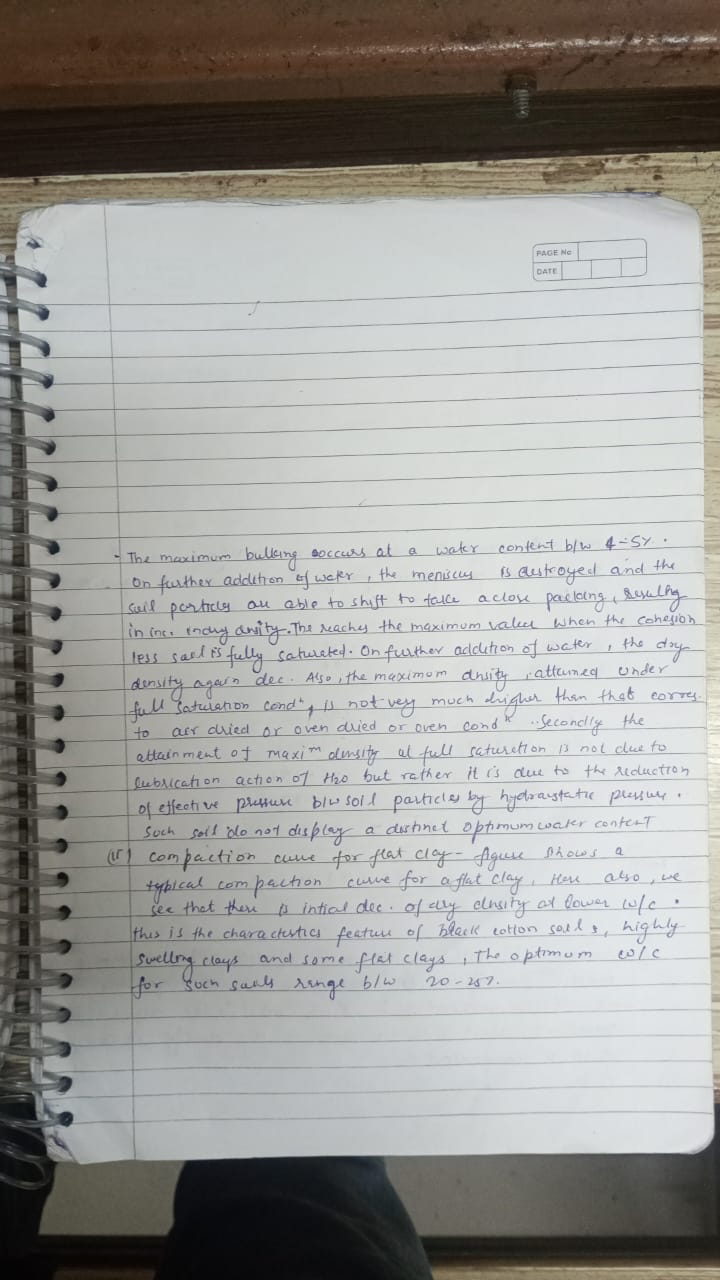 PAGE No
DATE
- The maximum bulking occurs at a water content b/w 4-5%.
On further addition of water, the meniscus is destroyed and the
soil particles are able to shift to take a close packing, resulting
in inc. in dry density. The reaches the maximum value when the cohesion
less soil is fully saturated. On further addition of water, the dry
density again dec. Also, the maximum density, attained under
full saturation condn, is not very much higher than that corres.
to air dried or oven dried or oven condn. Secondly the
attainment of maxim density at full saturation is not due to
lubrication action of H2O but rather it is due to the reduction
of effective pressure b/w soil particles by hydraustatic pressure.
Such soil do not display a distinct optimum water content
compaction curve for flat clay - figure shows a
typical compaction curve for a flat clay. Here also, we
see that there is intial dec. of dry density at lower w/c.
this is the charactestics feature of black cotton soils, highly
swelling clays and some flat clays, The optimum w/c
for such soils range b/w 20-25%.